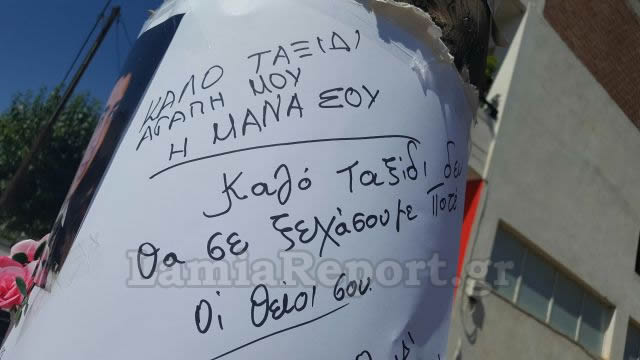 ΚΑΛΟ ΤΑΞΙΔΙ
ΑΓΑΠΗ ΜΟΥ
Η ΜΑΝΑ ΣΟΥ
Καλό ταξίδι δεν
θα σε ξεχάσουμε ποτέ
οι θείοι σου.
LamiaReport.gr